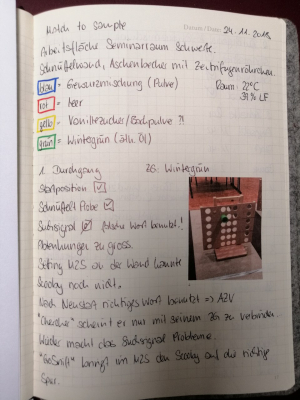 Match to Sample
Datum / Date: 24.11.2018
Arbeitsfläche Seminarraum Schweiz.
Schnüffelwand, Aschenbecher mit Zentrifugenröhrchen.
blau = Gewürzmischung (Pulver)
Raum: 22°C
39% LF
rot = leer
gelb = Vanillezucker/Backpulver ?!
grün = Wintergrün (äth. Öl)
1. Durchgang ZG: Wintergrün
Startposition ✓
Schnüffelt Probe ✓
Suchsignal falsches Wort benutzt!
Ablenkungen zu gross.
Setting M2S an der Wand kannte
Scooby noch nicht.
Nach Neustart richtiges Wort benutzt => AZV
scheint er nur mit seinem ZG zu verbinden.
Wieder macht das Suchsignal Probleme.
bringt im M2S den Scooby auf die richtige
Spur.